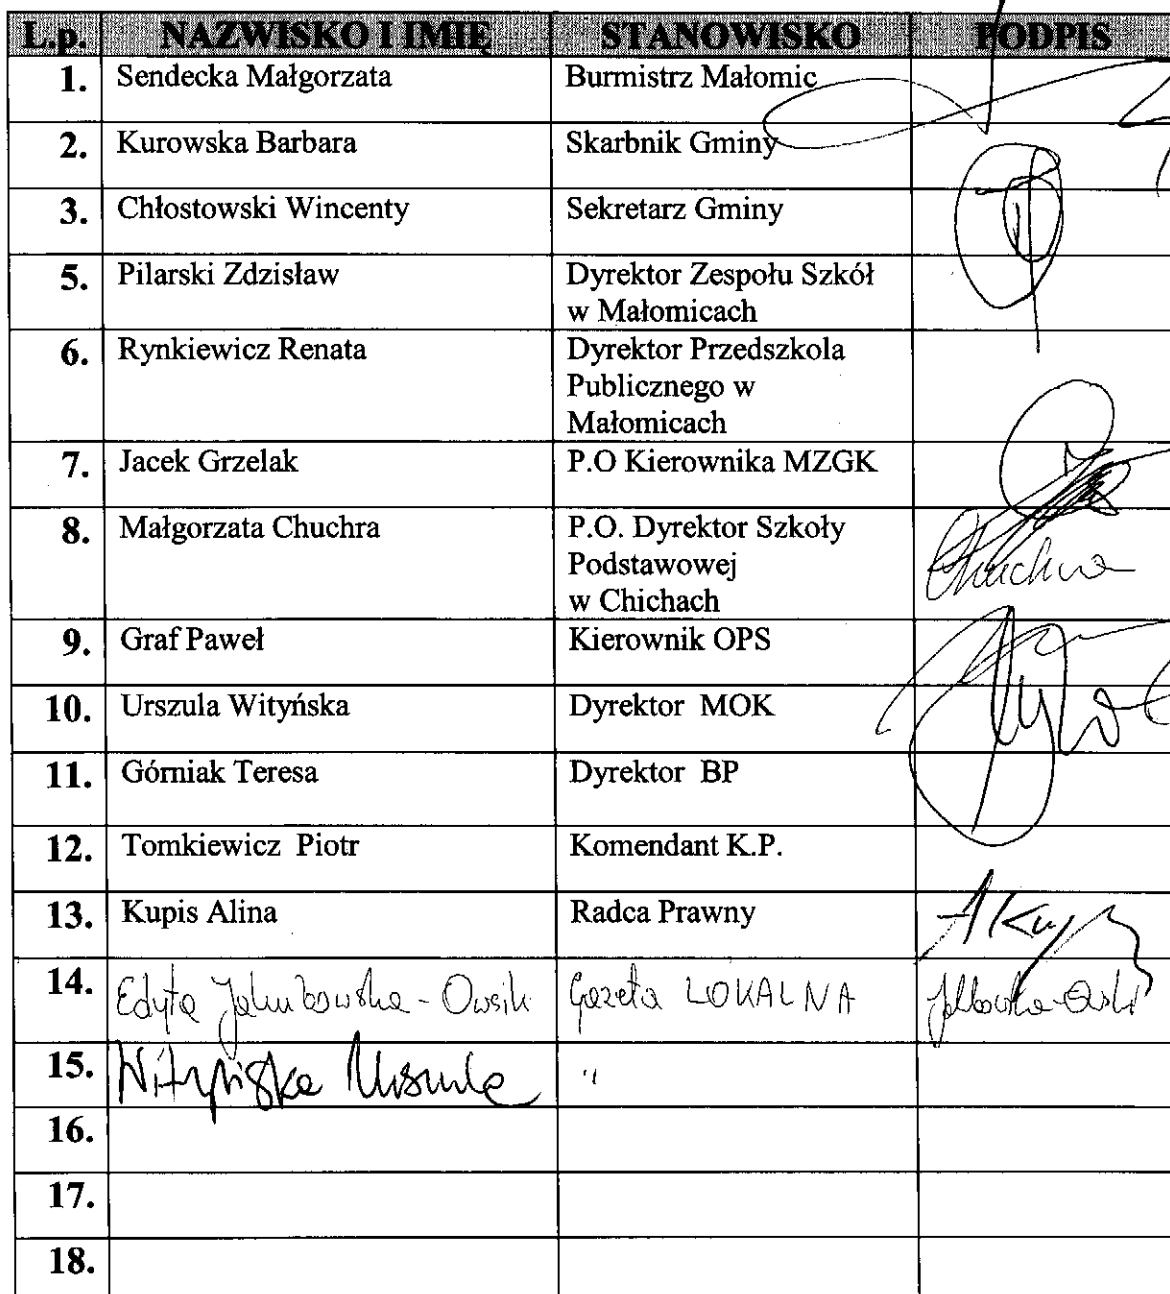 L.p. NAZWISKO I IMIĘ STANOWISKO PODPIS
1. Sendecka Małgorzata Burmistrz Małomic
2. Kurowska Barbara Skarbnik Gminy
3. Chłostowski Wincenty Sekretarz Gminy
5. Pilarski Zdzisław Dyrektor Zespołu Szkół
w Małomicach
6. Rynkiewicz Renata Dyrektor Przedszkola
Publicznego w
Małomicach
7. Jacek Grzelak P.O Kierownika MZGK
8. Małgorzata Chuchra P.O. Dyrektor Szkoły
Podstawowej
w Chichach
Chuchra
9. Graf Paweł Kierownik OPS
10. Urszula Wityńska Dyrektor MOK
11. Górniak Teresa Dyrektor BP
12. Tomkiewicz Piotr Komendant K.P.
13. Kupis Alina Radca Prawny
14. Edyta Jakubowska-Owsik Gazeta LOKALNA
15. Wityńska Urszula "
16.
17.
18.